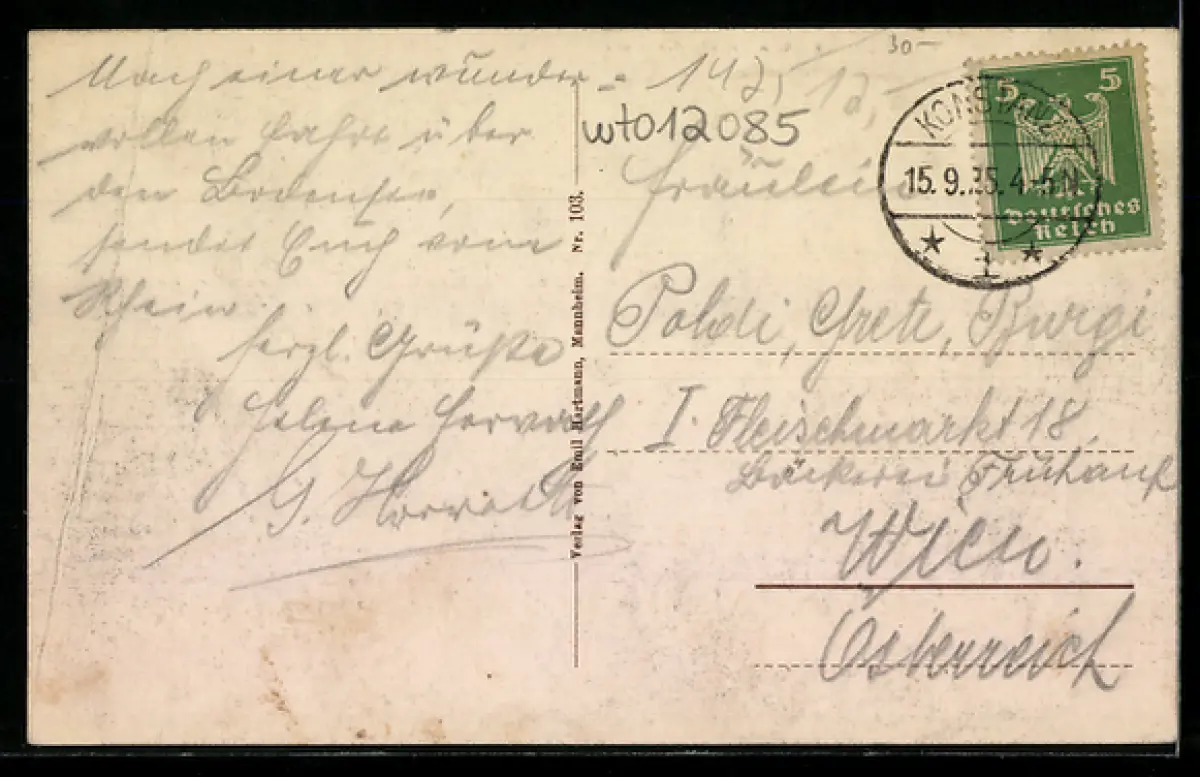 Nach einer wunder-
vollen Fahrt über
den Bodensee,
sendet Euch vom
Rhein
herzl. Grüße
Helene Horvath
G. Horvath
Verlag von Emil Hartmann, Mannheim. Nr. 103.
30-
wto12085
5 5
Deutsches
Reich
KONSTANZ
15.9.25.4-5N
* 1 *
Fräulein
Poldi, Grete, Burgi
I. Fleischmarkt 18
Bäckerei
Wien.
Österreich